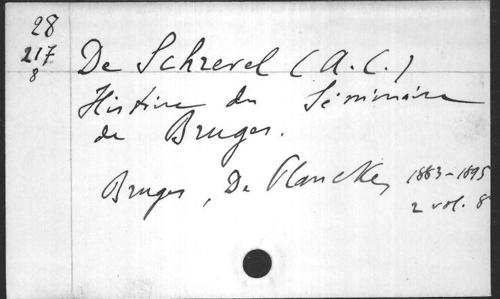 28
217
8
De Schrevel (A.C.)
Histoire du Séminaire
de Bruges.
Bruges, De Plancke, 1883-1895
2 vol. 8°